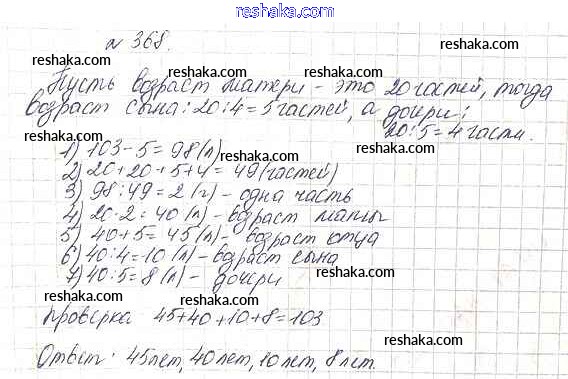 reshaka.com
№ 368.
reshaka.com reshaka.com
Пусть возраст матери - это 20 частей, тогда
возраст сына: 20 : 4 = 5 частей, а дочери:
20 : 5 = 4 части.
reshaka.com reshaka.com
1) 103 - 5 = 98 (л)
2) 20 + 20 + 5 + 4 = 49 (частей)
3) 98 : 49 = 2 (г) - одна часть
4) 20 · 2 = 40 (л) - возраст мамы
5) 40 + 5 = 45 (л) - возраст отца
6) 40 : 4 = 10 (л) - возраст сына
7) 40 : 5 = 8 (л) - дочери
reshaka.com reshaka.com
reshaka.com reshaka.com
reshaka.com reshaka.com
reshaka.com reshaka.com
Проверка: 45 + 40 + 10 + 8 = 103
reshaka.com reshaka.com
Ответ: 45 лет, 40 лет, 10 лет, 8 лет.
reshaka.com